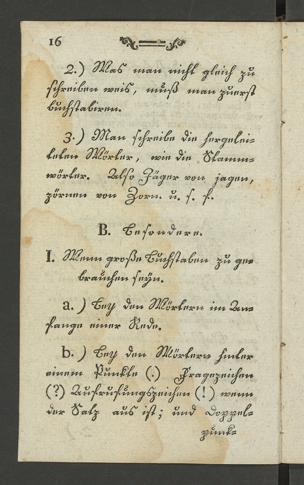 16
2.) Was man nicht gleich zu
schreiben weis, muß man zuerst
buchstabiren.
3.) Man schreibe die hergelei-
teten Wörter, wie die Stamm-
wörter. Also Jäger von jagen,
zörnen von Zorn. u. s. f.
B. Besondere.
I. Wenn große Buchstaben zu ge-
brauchen seyn.
a.) Bey den Wörtern im An-
fange einer Rede.
b.) Bey den Wörtern hinter
einem Punkte (.) Fragezeichen
(?) Ausrufungszeichen (!) wenn
der Satz aus ist; und Doppel-
punk-